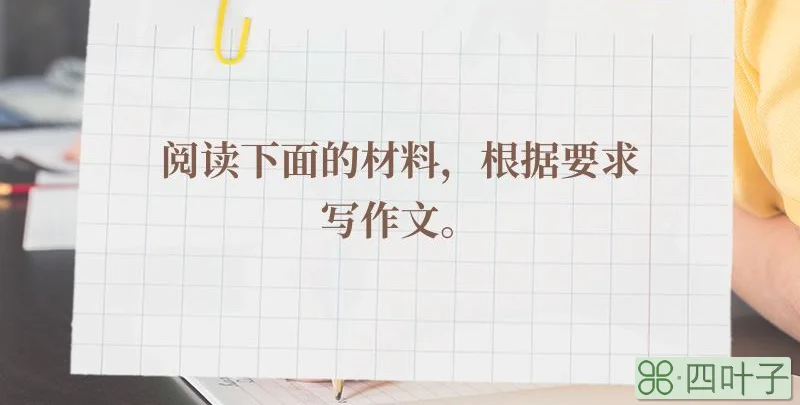 阅读下面的材料，根据要求
写作文。
四叶子